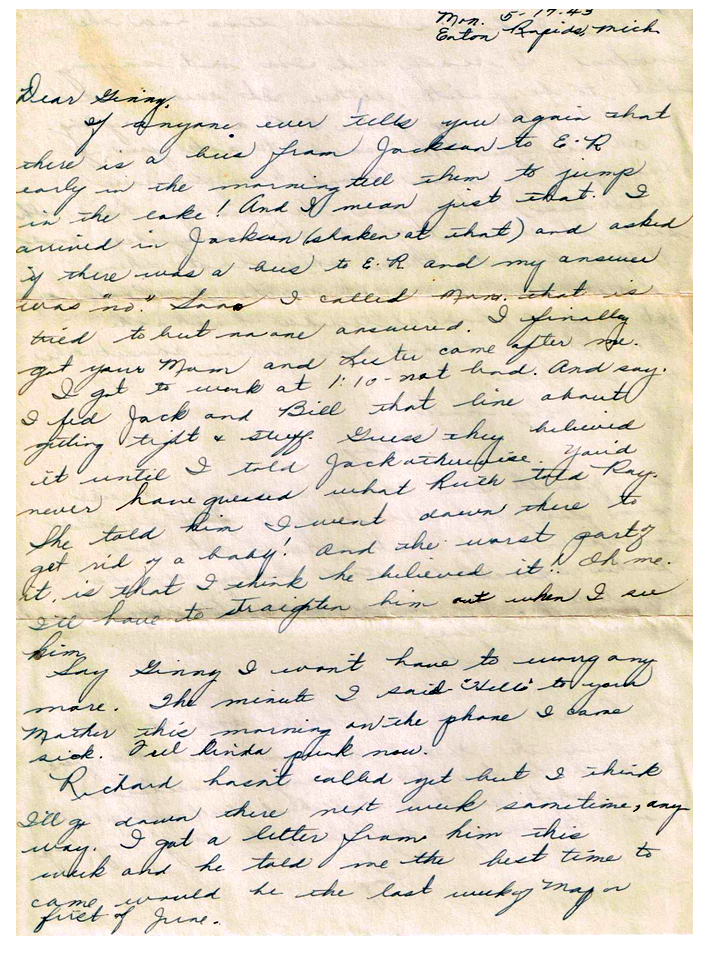 Mon. 5-17-43
Eaton Rapids, Mich
Dear Ginny,
If anyone ever tells you again that
there is a bus from Jackson to E.R
early in the morning tell them to jump
in the lake! And I mean just that. I
arrived in Jackson (shaken at that) and asked
if there was a bus to E.R and my answer
was "no." Soooo I called Mom. that is
tried to but no one answered. I finally
got your Mom and came after me.
I got to work at 1:10 - not bad. And say.
I fed Jack and Bill that line about
getting tight & stuff. Guess they believed
it until I told Jack otherwise. You'd
never have guessed what Ruth told Ray.
She told him I went down there to
get rid of a baby! And the worst part of
it, is that I think he believed it! Oh me.
I'll have to straighten him out when I see
him.
Say Ginny I won't have to worry any
more. The minute I said "Hello" to your
Mother this morning on the phone I came
sick. Feel kinda punk now.
Richard hasn't called yet but I think
I'll go down there next week sometime, any
way. I got a letter from him this
week and he told me the best time to
come would be the last week of May or
first of June.